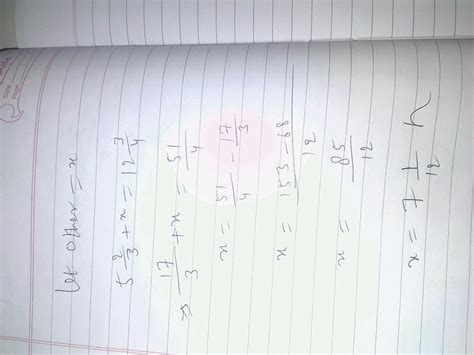 Let other = x
5 2/3 + x = 12 3/4
⇒ 17/3 + x = 51/4
x = 51/4 - 17/3
x = 153-68/12
x = 85/12
x = 7 1/12